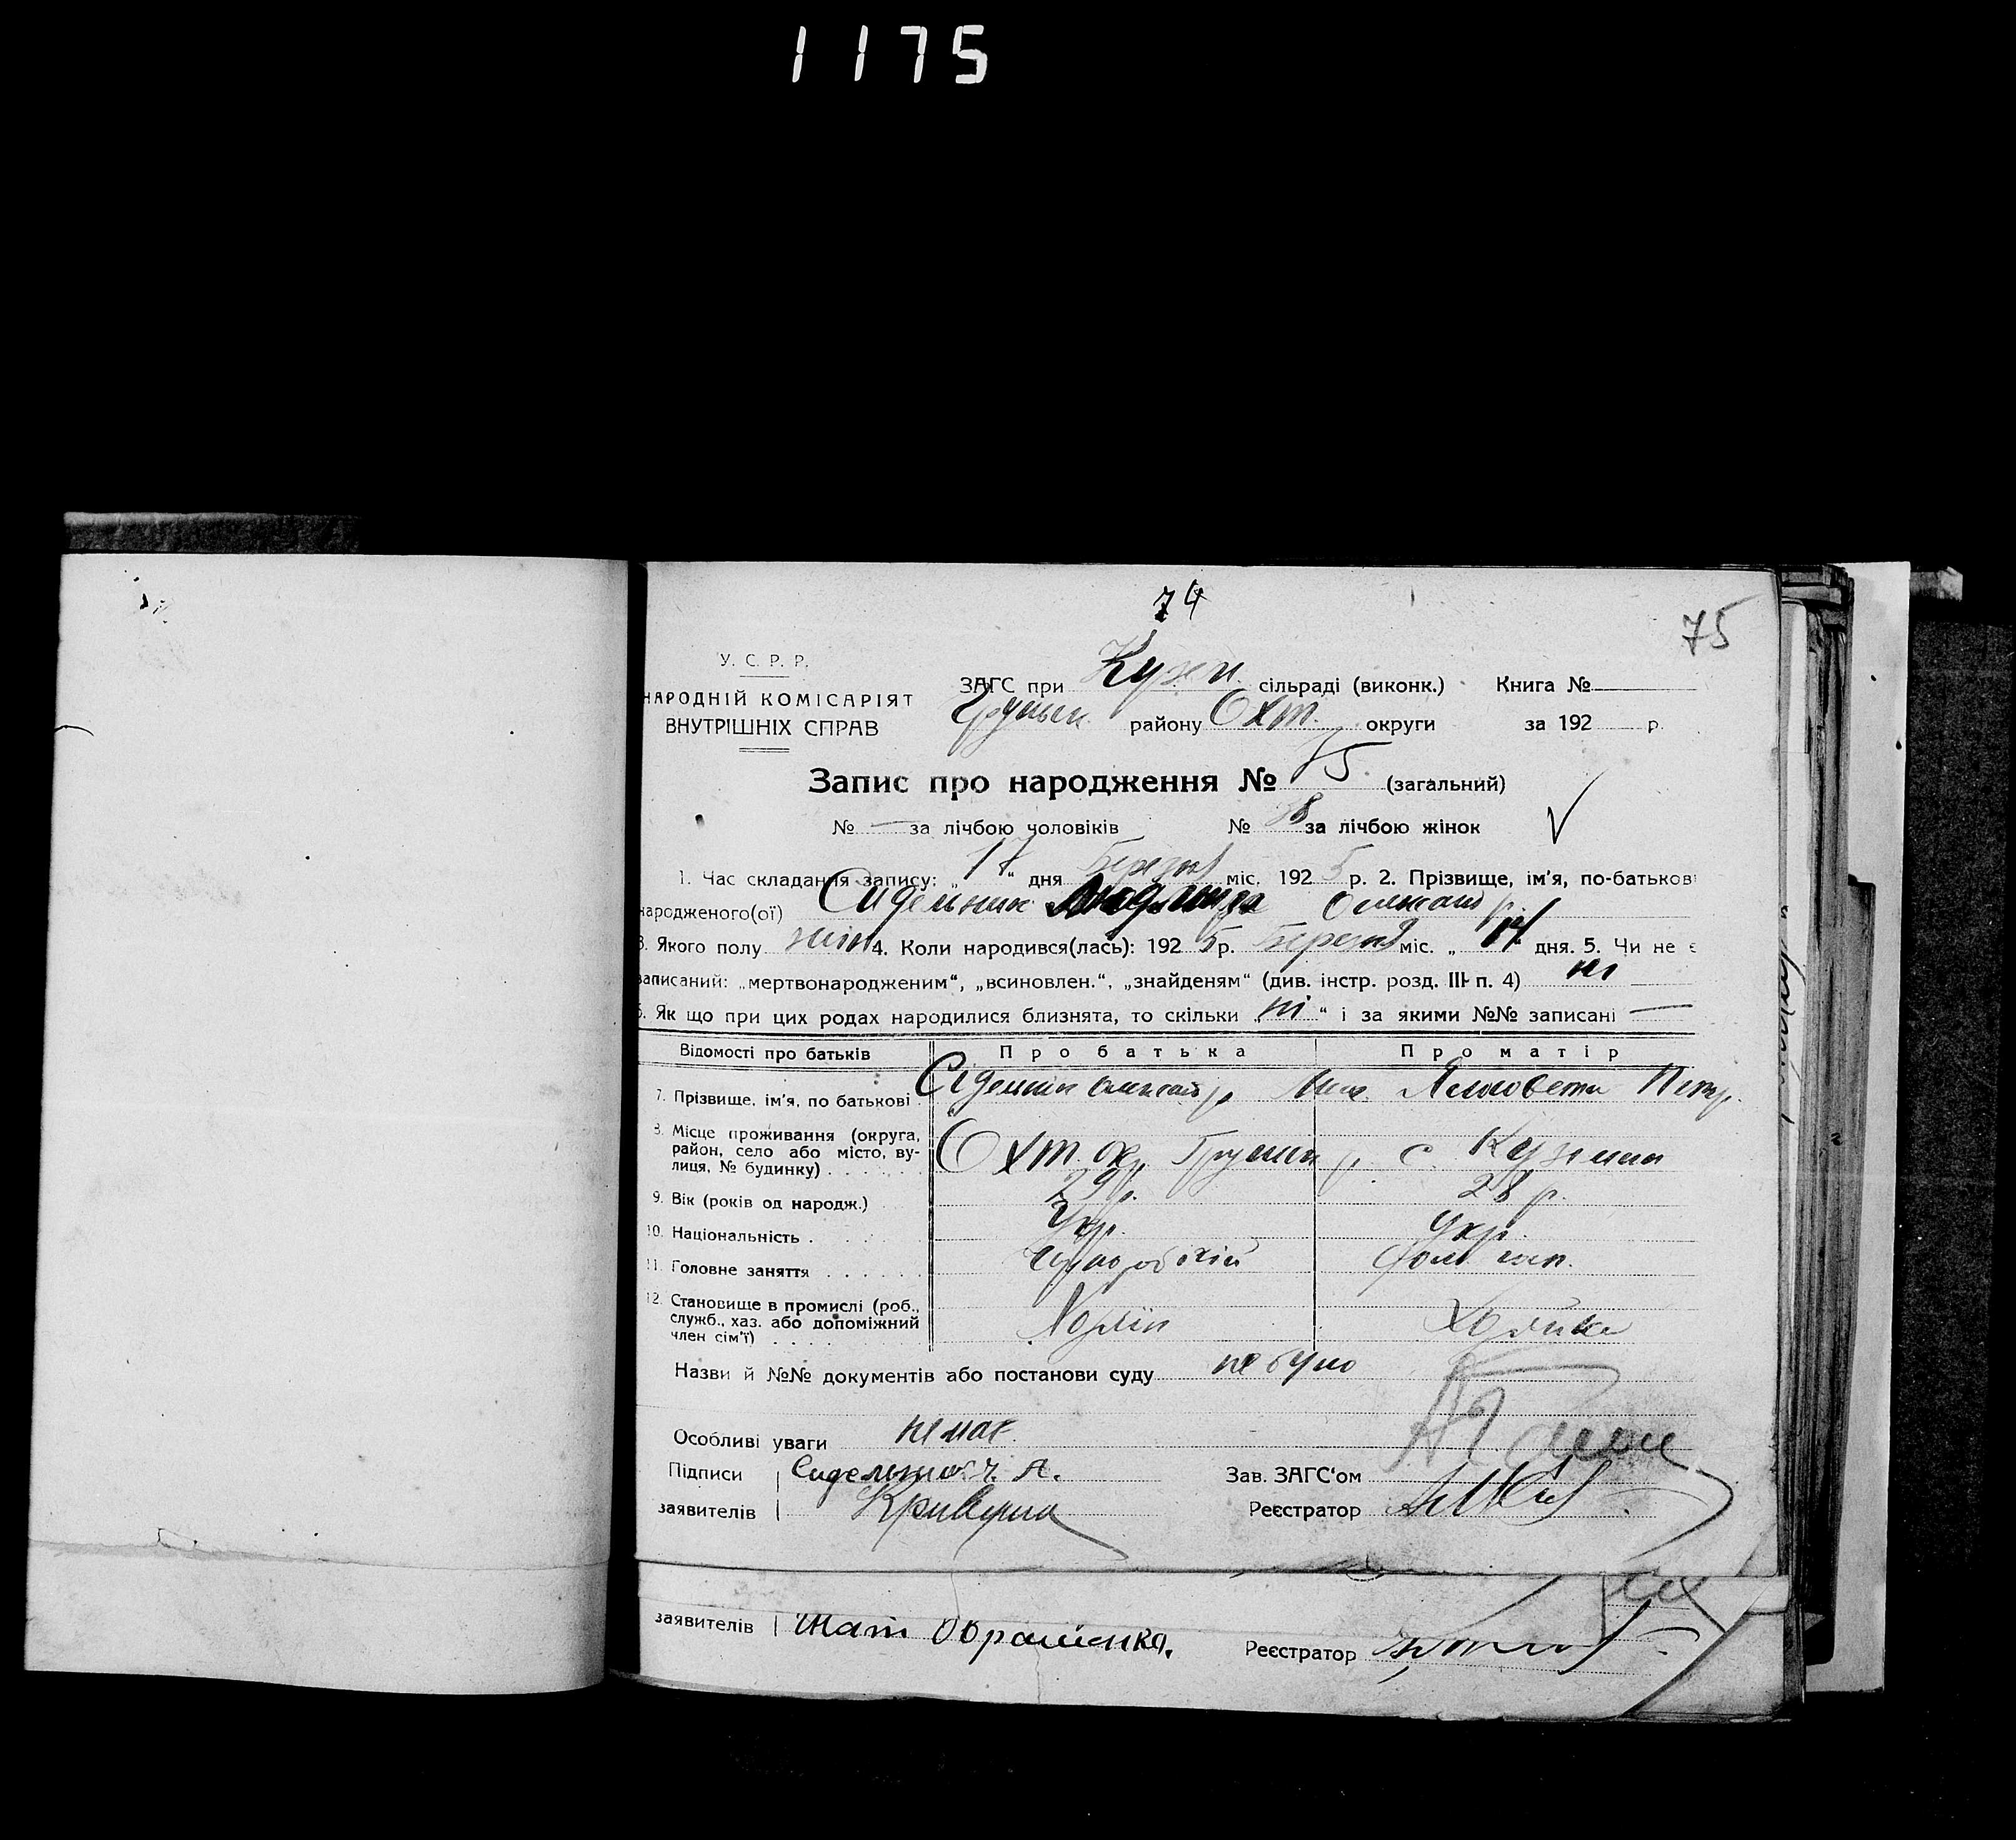 1175
74
75
У. С. Р. Р.
НАРОДНІЙ КОМІСАРІЯТ
ВНУТРІШНІХ СПРАВ
ЗАГС при Кузем. сільраді (виконк.) Книга №
району Охт. округи за 192 р.
Запис про народження № 75 (загальний)
№ — за лічбою чоловіків № 38 за лічбою жінок
1. Час складання запису: „17“ дня Березня міс. 1925 р. 2. Прізвище, ім'я, по-батькові
народженого(ої) Сидельник
3. Якого полу жін 4. Коли народився(лась): 1925 р. Березня міс. „14“ дня. 5. Чи не є
записаний: „мертвонародженим“, „всиновлен.“, „знайденям“ (див. інстр. розд. III п. 4) ні
6. Як що при цих родах народилися близнята, то скільки „ні“ і за якими №№ записані —
Відомості про батьків Про батька Про матір
7. Прізвище, ім'я, по батькові Сидельник Петр.
8. Місце проживання (округа,
район, село або місто, ву-
лиця, № будинку) . . . . . Охт. окр. Грунськ р. с. Куземин
9. Вік (років од народж.) 29 р. 28 р.
10. Національність . Укр. Укр.
11. Головне заняття . . . . . . дом. госп.
12. Становище в промислі (роб.,
служб., хаз. або допоміжний
член сім'ї) . . . . Хазяїн Хазяйка
Назви й №№ документів або постанови суду не було
Особливі уваги немає
Підписи Сидельник А. Зав. ЗАГС'ом
заявителів Реєстратор
заявителів Реєстратор